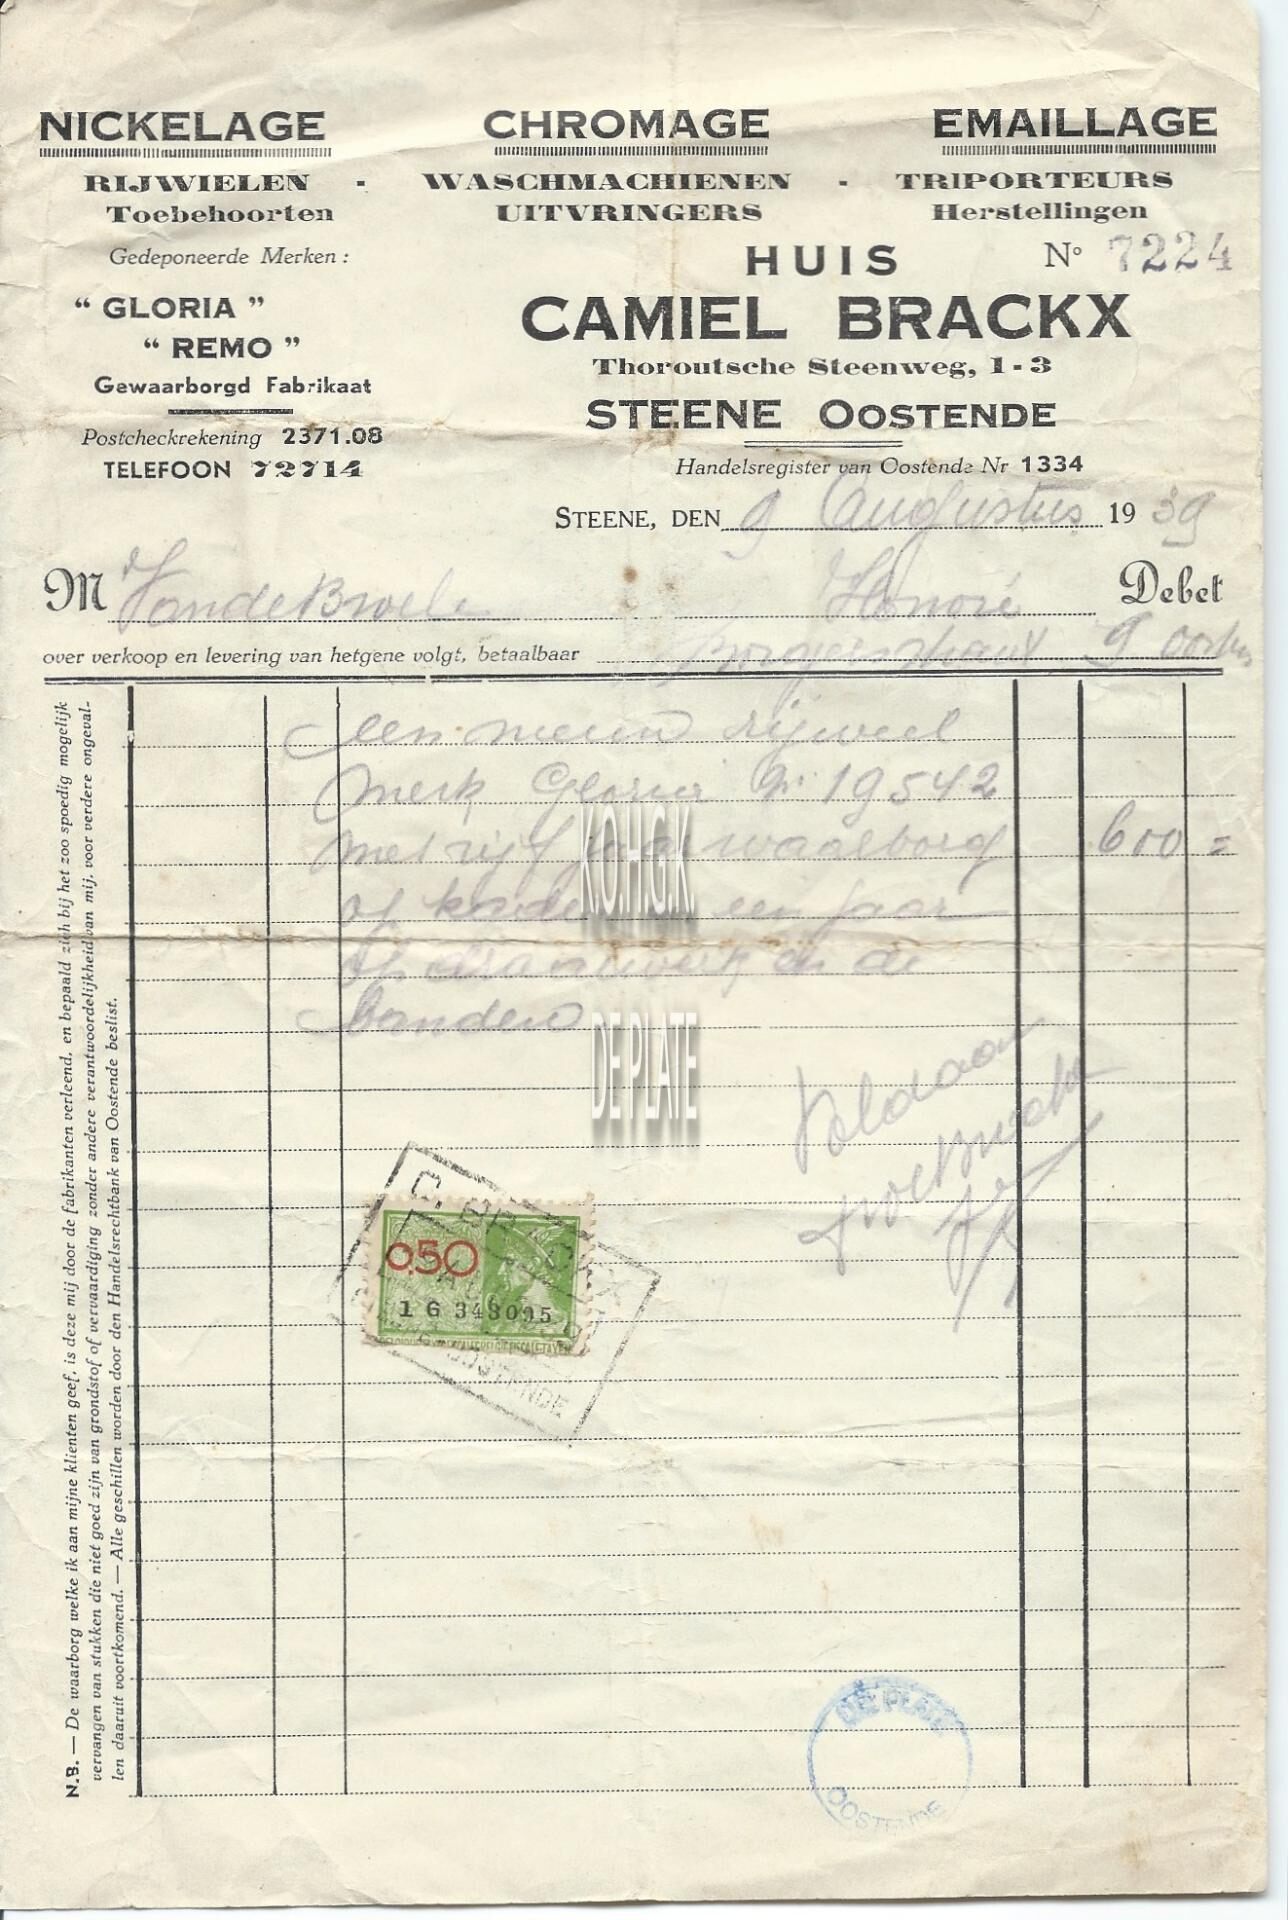 NICKELAGE CHROMAGE EMAILLAGE
RIJWIELEN - WASCHMACHIENEN - TRIPORTEURS
Toebehoorten UITVRINGERS Herstellingen
Gedeponeerde Merken :
“ GLORIA ”
“ REMO ”
Gewaarborgd Fabrikaat
Postcheckrekening 2371.08
TELEFOON 72714
HUIS
Nº 7224
CAMIEL BRACKX
Thoroutsche Steenweg, 1-3
STEENE OOSTENDE
Handelsregister van Oostende Nr 1334
STEENE, DEN 9 Augustus 1939
M VandeBroele Honoré Debet
over verkoop en levering van hetgene volgt, betaalbaar 9
een nieuw rijwiel
merk Gloria Nr 19542
met vijf jaar waarborg 600 =
op kader een jaar
op draaiwerk en de
banden
Voldaan
C. BRACKX
OOSTENDE
0,50
1 G 343095
K.O.H.G.K.
DE PLATE
DE PLATE
OOSTENDE
N.B. — De waarborg welke ik aan mijne klienten geef, is deze mij door de fabrikanten verleend, en bepaald zich bij het zoo spoedig mogelijk
vervangen van stukken die niet goed zijn van grondstof of vervaardiging zonder andere verantwoordelijkheid van mij. voor verdere ongeval-
len daaruit voortkomend. — Alle geschillen worden door den Handelsrechtbank van Oostende beslist.